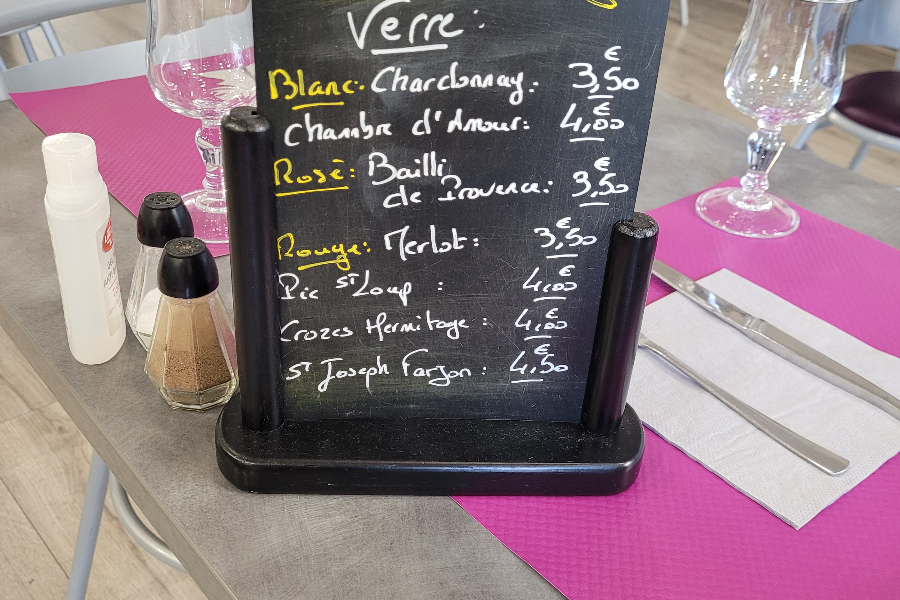 Verre :
Blanc: Chardonnay: 3,50€
Chambre d'Amour: 4,00€
Rosé: Bailli
de Provence: 3,50€
Rouge: Merlot: 3,50€
Pic St Loup : 4,00€
Crozes Hermitage : 4,00€
St Joseph Farjon : 4,50€